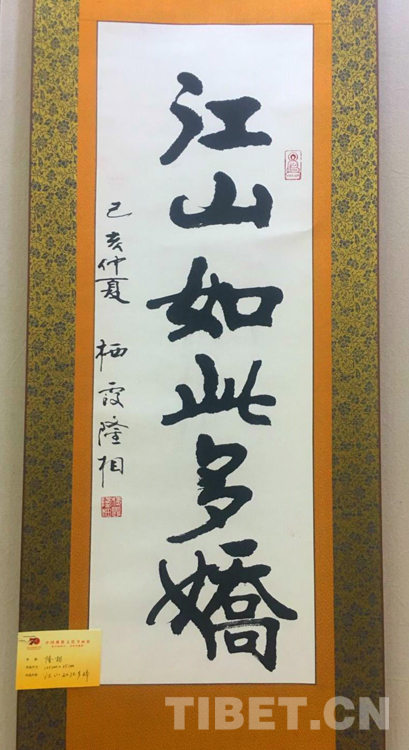 江山如此多嬌
己亥仲夏 栖霞隆相
70
隆相
江山如此多娇
TIBET.CN